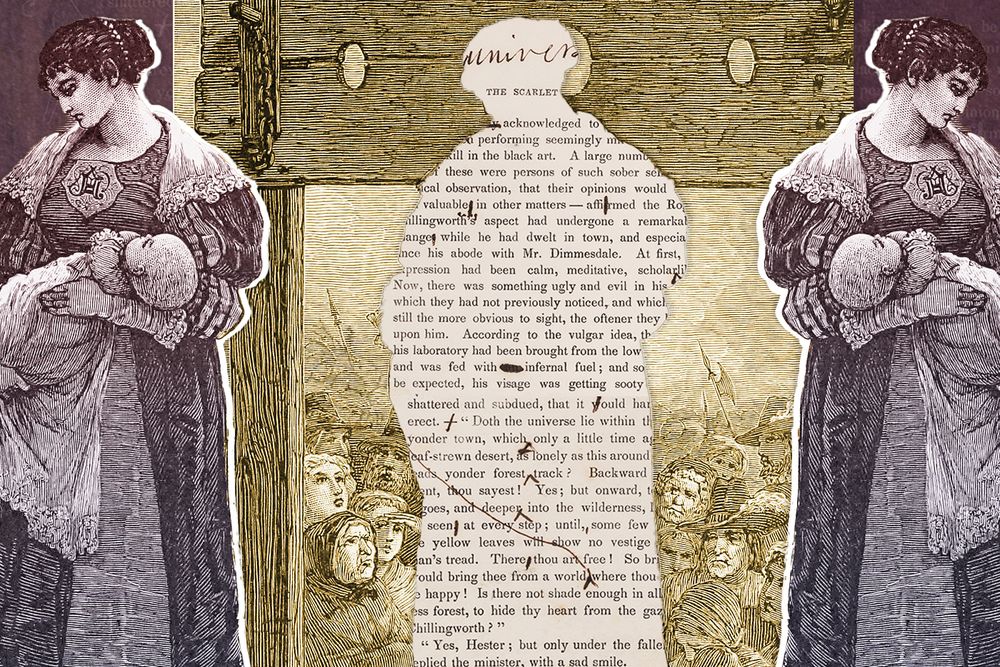 univers
THE SCARLET
y acknowledged to
n performing seemingly m
kill in the black art. A large numb
these were persons of such sober sen
ical observation, that their opinions would
valuable in other matters — affirmed the Ro
hillingworth's aspect had undergone a remarkal
ange while he had dwelt in town, and especia
ince his abode with Mr. Dimmesdale. At first,
xpression had been calm, meditative, scholarli
Now, there was something ugly and evil in his
which they had not previously noticed, and which
still the more obvious to sight, the oftener they
upon him. According to the vulgar idea, th
his laboratory had been brought from the low
and was fed with infernal fuel; and so
be expected, his visage was getting sooty
shattered and subdued, that it would har
erect. "Doth the universe lie within th
yonder town, which only a little time ag
leaf-strewn desert, as lonely as this around
eads yonder forest track? Backward
ent, thou sayest! Yes; but onward, t
goes, and deeper into the wilderness,
seen at every step; until, some few
yellow leaves will show no vestige
an's tread. There thou art free! So bri
ould bring thee from a world where thou
e happy! Is there not shade enough in all
ess forest, to hide thy heart from the gaz
hillingworth?"
"Yes, Hester; but only under the falle
eplied the minister, with a sad smile.
A
A